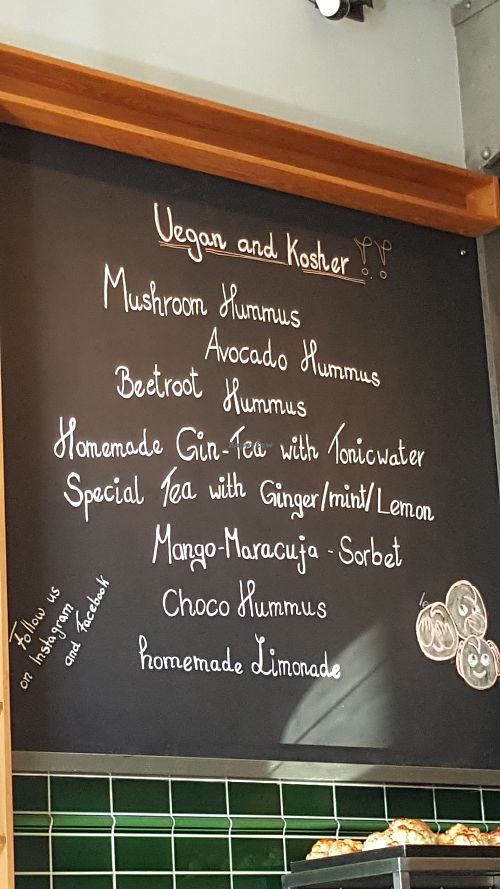 Vegan and Kosher !!
Mushroom Hummus
Avocado Hummus
Beetroot Hummus
Homemade Gin-Tea with Tonicwater
Special Tea with Ginger/mint/Lemon
Mango-Maracuja - Sorbet
Choco Hummus
homemade Limonade
Follow us
on Instagram
and Facebook